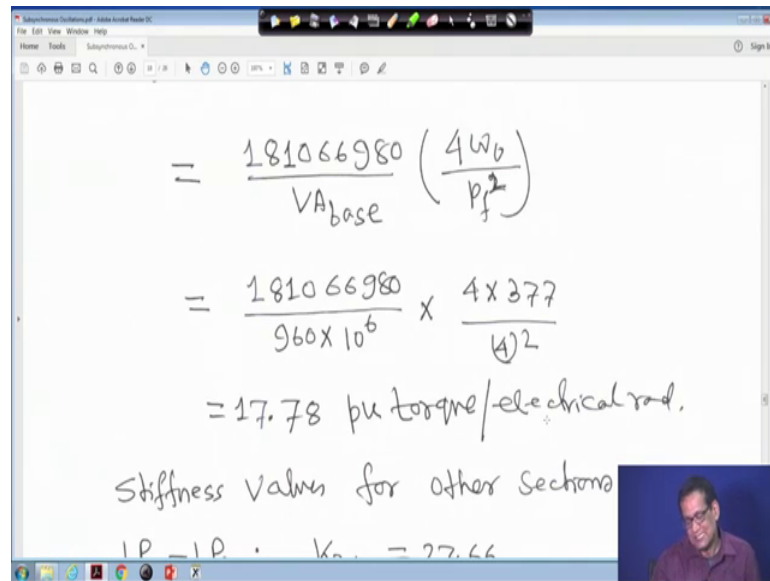 Subsynchronous Oscillations.pdf - Adobe Acrobat Reader DC
File Edit View Window Help
Home Tools Subsynchronous O... ×
Sign In
= 181066980 / VAbase ( 4ω0 / Pf² )
= 181066980 / 960 × 10⁶ × 4 × 377 / (4)²
= 17.78 pu torque/electrical rad.
Stiffness values for other sections